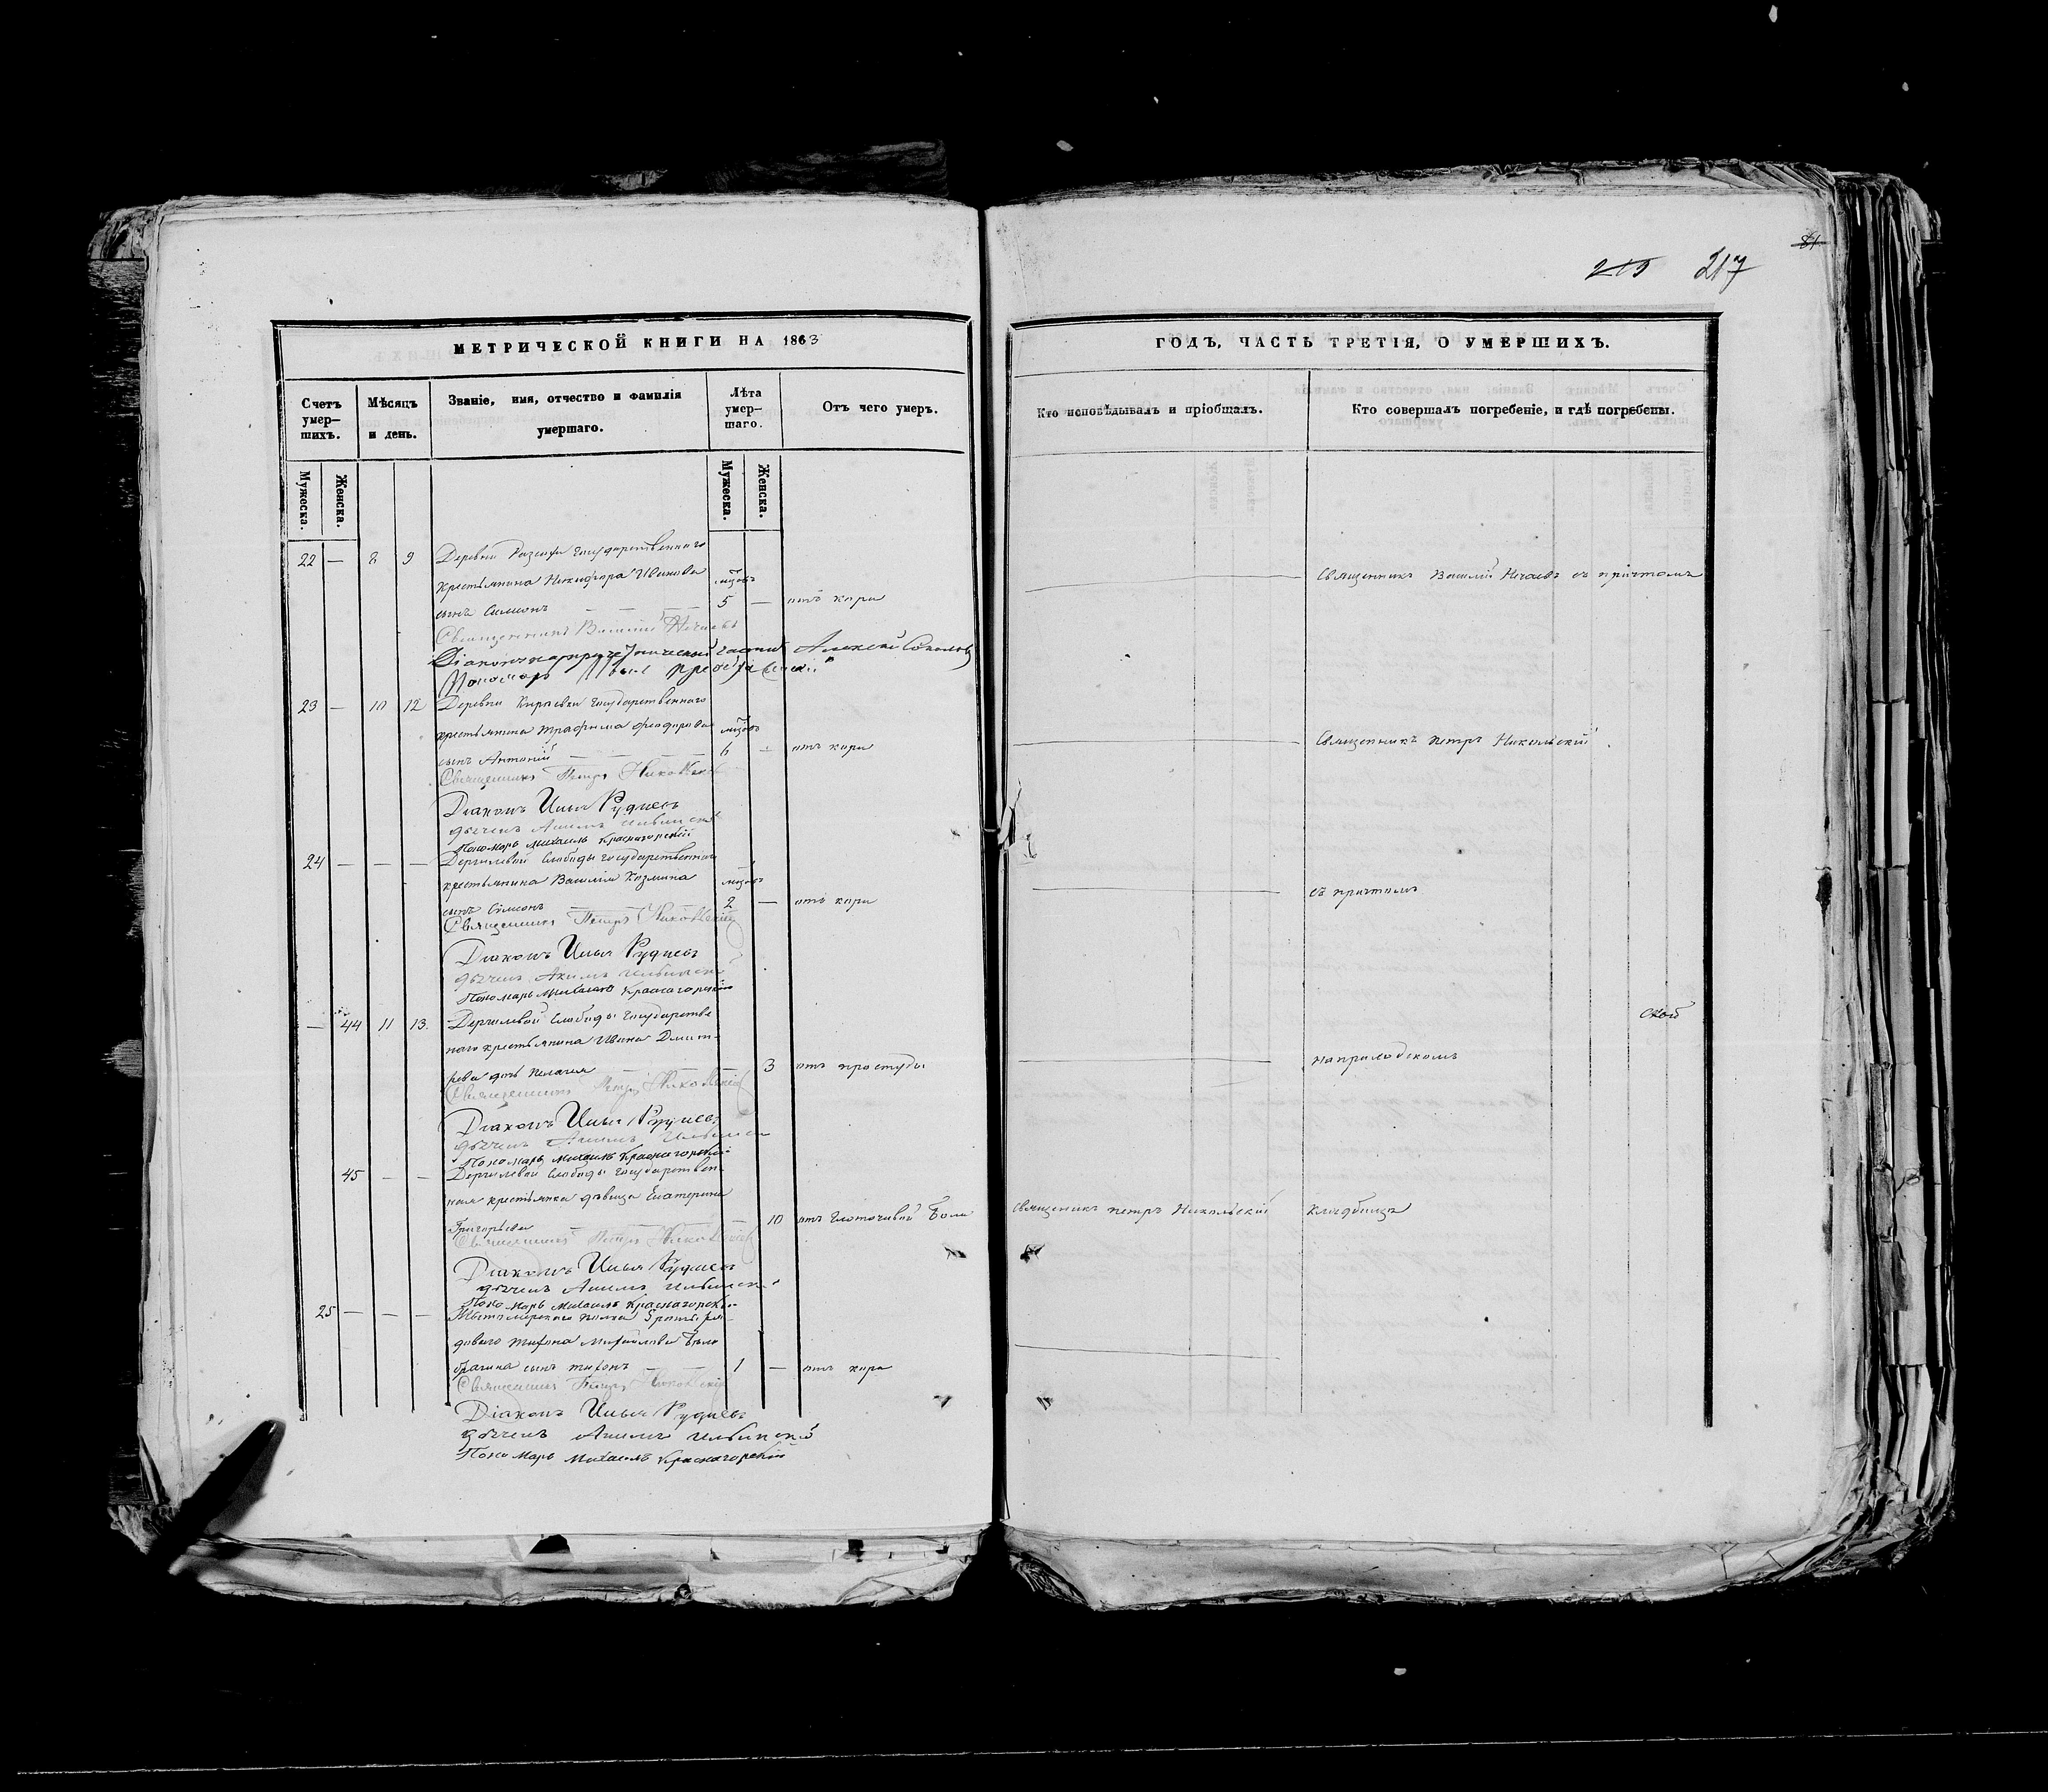 81
215 217
МЕТРИЧЕСКОЙ КНИГИ НА 1863
ГОДЪ, ЧАСТЬ ТРЕТІЯ, О УМЕРШИХЪ.
Счетъ умер—шихъ.
Мѣсяцъ и день.
Званіе, имя, отчество и фамилія умершаго.
Лѣта умер—шаго.
Отъ чего умеръ.
Кто исповѣдывалъ и пріобщалъ.
Кто совершалъ погребеніе, и гдѣ погребены.
Мужеска.
Женска.
Мужеска.
Женска.
22 — 8 9 Деревни государственнаго
крестьянина Никифора Иванова
Священникъ Василій Нечаевъ съ причтомъ
сынъ Симеонъ — — — 5 — отъ кори
Священникъ Василій Нечаевъ
Алексей Соколовъ
Пономарь
23 — 10 12 Деревни государственнаго
крестьянина Трофима Феодорова
Священникъ Петръ Никольскій
сынъ Антоній — — — 6 — отъ кори
Священникъ Петръ Никольскій
Діаконъ Илья Рудневъ
дьячекъ Акимъ Ильинскій
Пономарь Михаилъ Красногорскій
24 — — — Дергилевой Слободы государственнаго
крестьянина Василія Козмина
съ причтомъ
сынъ Симеонъ — — 2 — отъ кори
Священникъ Петръ Никольскій
Діаконъ Илья Рудневъ
дьячекъ Акимъ Ильинскій
Пономарь Михаилъ Красногорскій
— 44 11 13. Дергилевой Слободы государстве
скої
ннаго крестьянина Ивана Дмит-
на приходскомъ
рева дочь Пелагея — 3 отъ простуды
Священникъ Петръ Никольскій
Діаконъ Илья Рудневъ
дьячекъ Акимъ Ильинскій
Пономарь Михаилъ Красногорскій
45 — — Дергилевой Слободы государствен-
ная крестьянка дѣвица Екатерина
Священникъ Петръ Никольскій кладбищѣ
Григорьева — — — 10 отъ глоточной боли
Священникъ Петръ Никольскій
Діаконъ Илья Рудневъ
дьячекъ Акимъ Ильинскій
Пономарь Михаилъ Красногорскій
25 — — — полка ря-
доваго Тихона Михайлова
сынъ Тихонъ — — 1 — отъ кори
Священникъ Петръ Никольскій
Діаконъ Илья Рудневъ
дьячекъ Акимъ Ильинскій
Пономарь Михаилъ Красногорскій